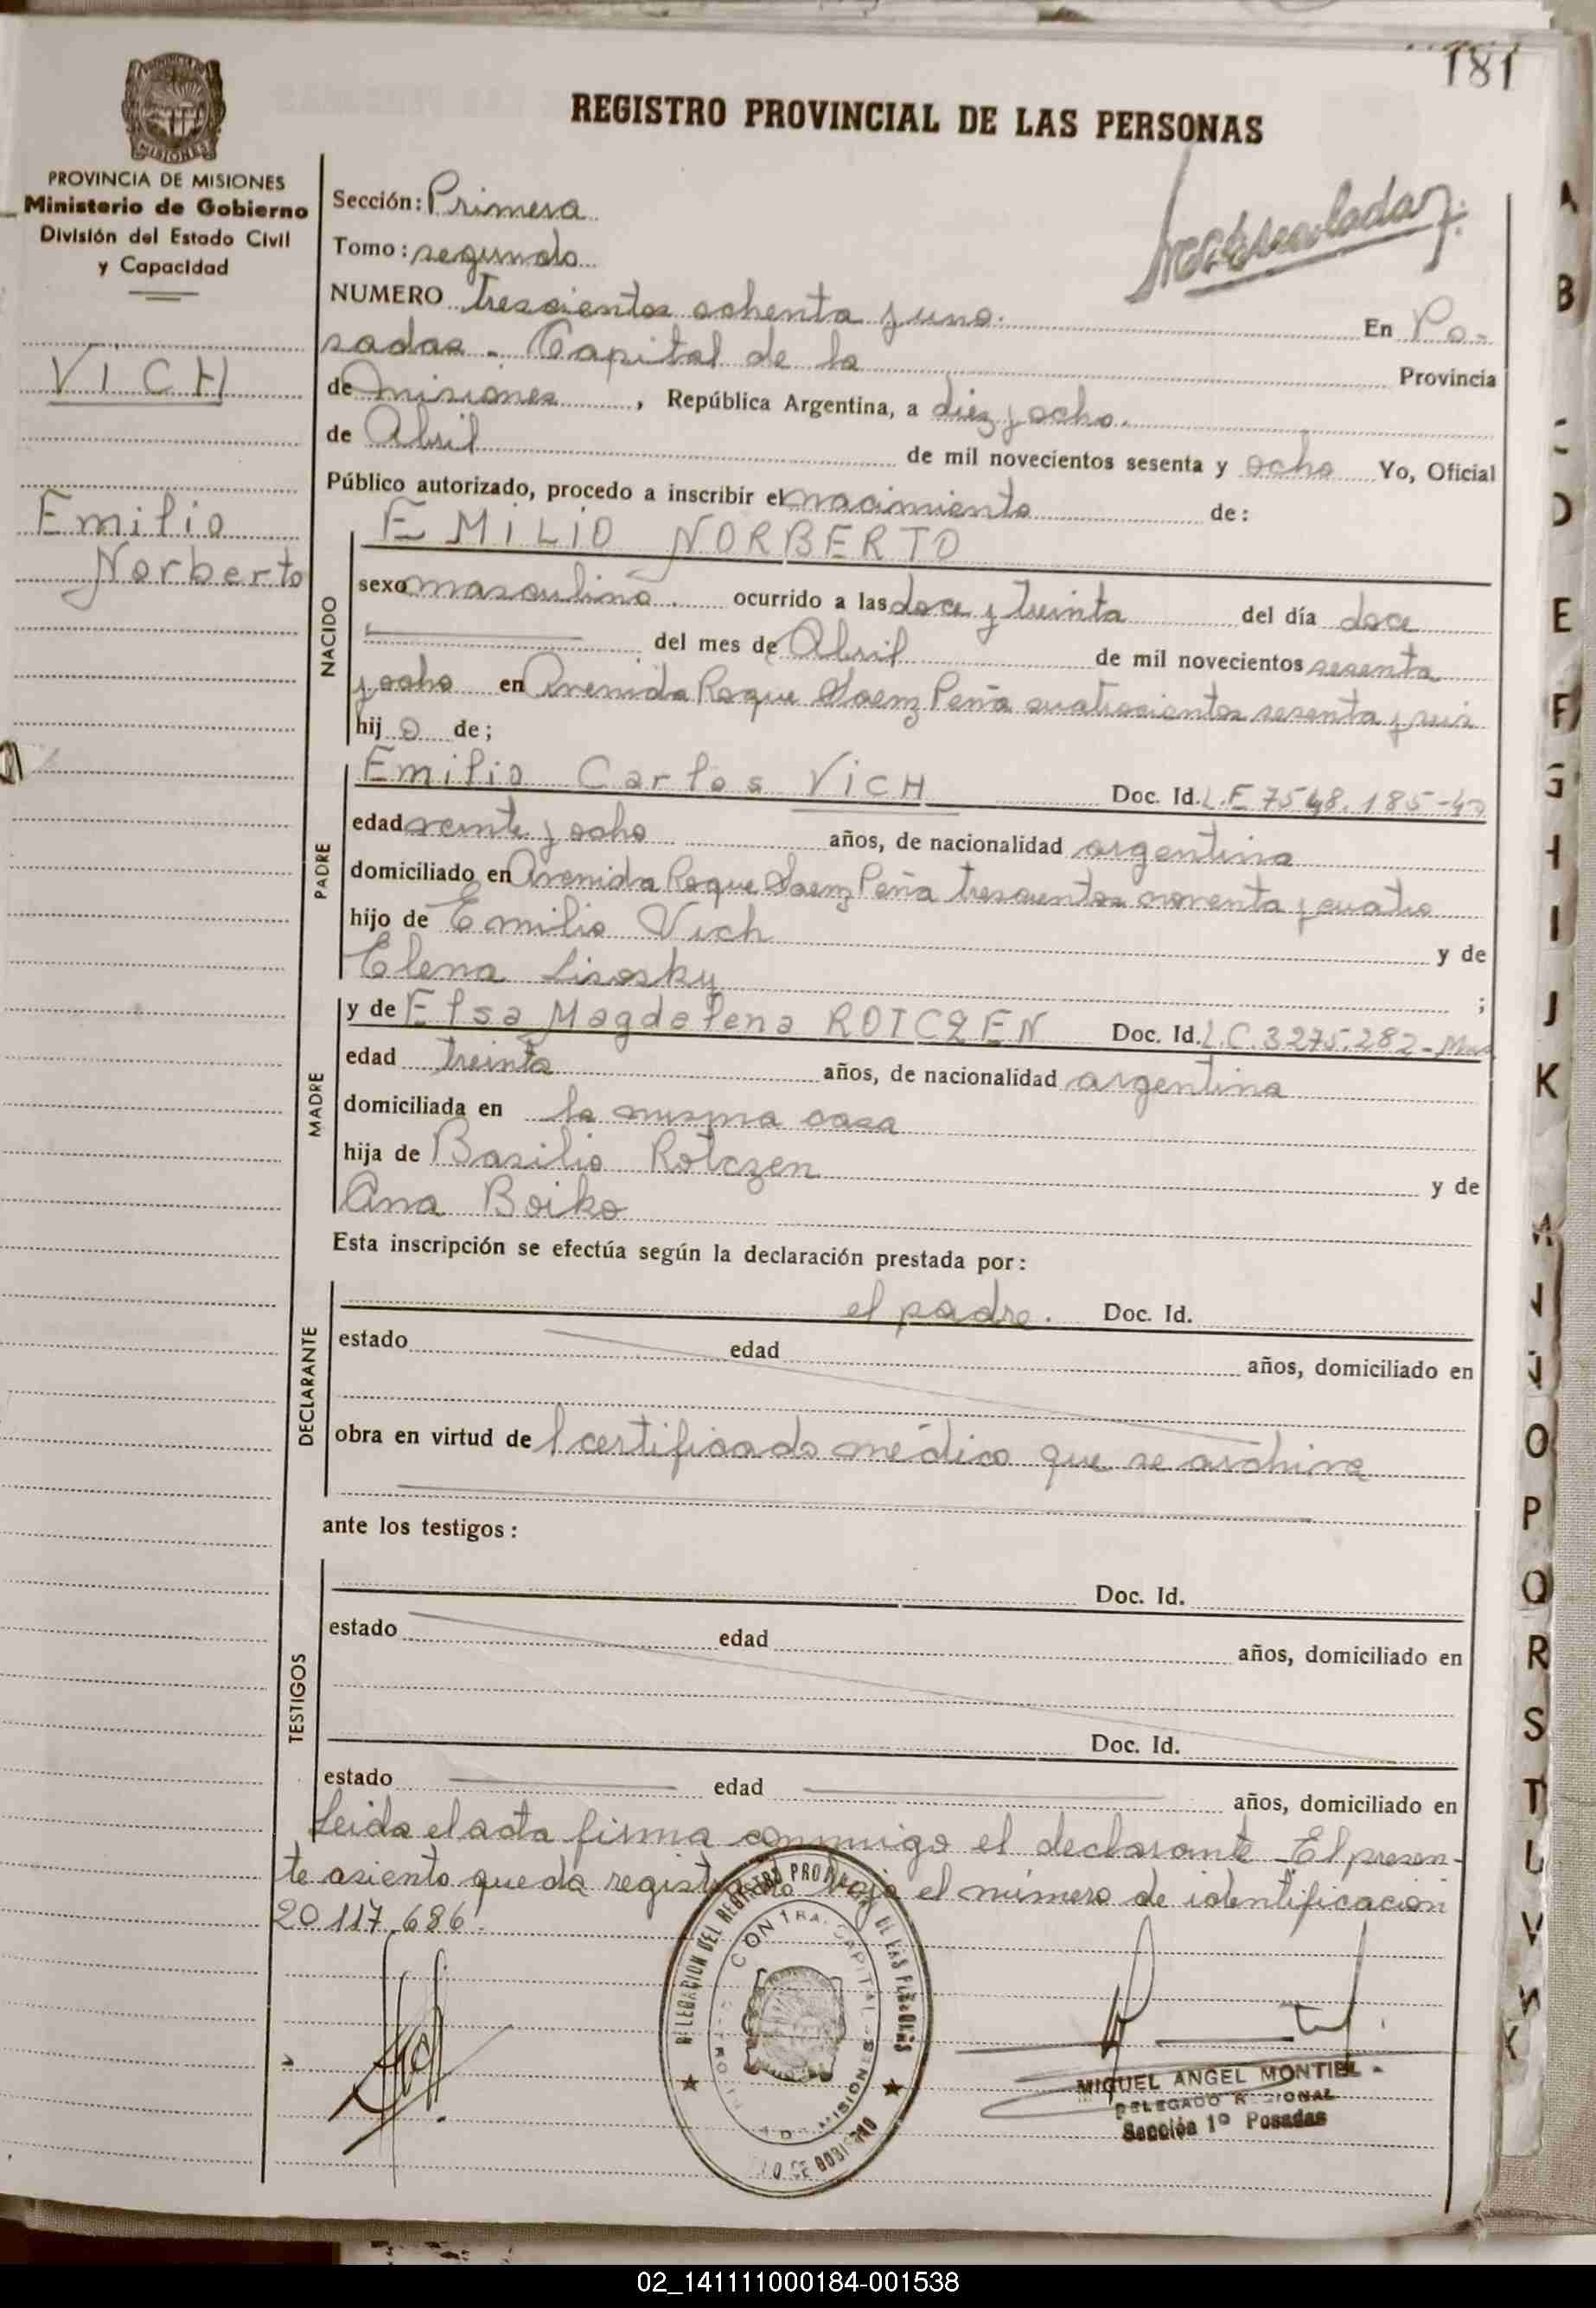 181
REGISTRO PROVINCIAL DE LAS PERSONAS
MISIONES
PROVINCIA DE MISIONES
Ministerio de Gobierno
División del Estado Civil
y Capacidad
VICH
Emilio
Norberto
Sección: Primera
Tomo: segundo
NUMERO Trescientos ochenta y uno. En Po-
sadas - Capital de la Provincia
de Misiones, República Argentina, a diez y ocho.
de Abril de mil novecientos sesenta y ocho Yo, Oficial
Público autorizado, procedo a inscribir el nacimiento de:
EMILIO NORBERTO
NACIDO
sexo masculino. ocurrido a las doce y treinta del día doce
del mes de Abril de mil novecientos sesenta
y ocho en Avenida Roque Saenz Peña cuatrocientos sesenta y seis
hijo de;
PADRE
Emilio Carlos VICH Doc. Id. L.E 7548.185-
edad veinte y ocho años, de nacionalidad argentina
domiciliado en Avenida Roque Saenz Peña trescientos noventa y cuatro
hijo de Emilio Vich y de
Elena Lisosky ;
MADRE
y de Elsa Magdalena ROTCZEN Doc. Id. L.C. 3275.282-
edad treinta años, de nacionalidad argentina
domiciliada en la misma casa
hija de Basilio Rotczen y de
Ana Boiko
Esta inscripción se efectúa según la declaración prestada por:
DECLARANTE
el padre. Doc. Id.
estado edad años, domiciliado en
obra en virtud del certificado médico que se archiva
ante los testigos:
TESTIGOS
Doc. Id.
estado edad años, domiciliado en
Doc. Id.
estado edad años, domiciliado en
Leida el acta firma conmigo el declarante El presen-
te asiento queda registrado bajo el número de identificación
20.117.686.
DELEGACION DEL REGISTRO PROVINCIAL DE LAS PERSONAS
MIGUEL ANGEL MONTIEL
DELEGADO REGIONAL
Sección 1º Posadas
A
B
C
D
E
F
G
H
I
J
K
O
P
Q
R
S
T
U
V
W
02_141111000184-001538